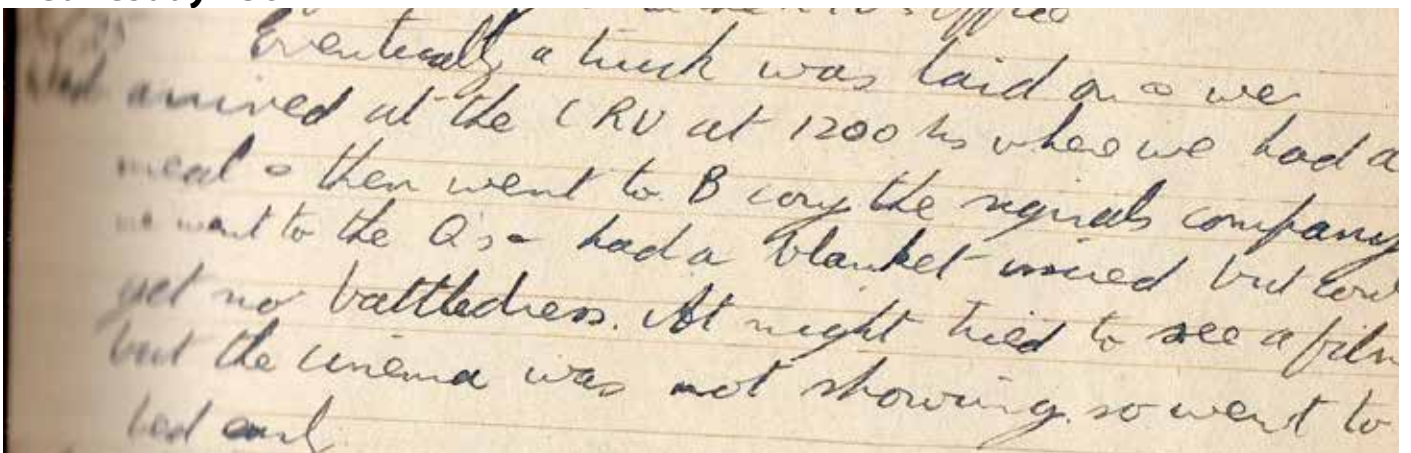 Eventually a truck was laid on & we
arrived at the CRU at 1200 hs where we had a
meal & then went to B coy the signals company
we went to the Q's & had a blanket issued but
get no battledress. At night tried to see a film
but the cinema was not showing so went to
bed early